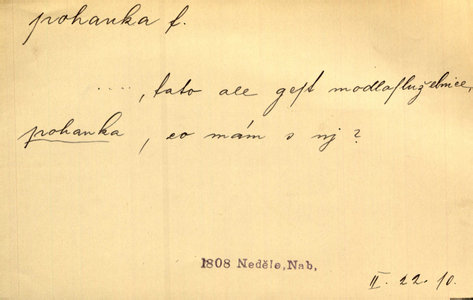 pohanka f.
....., tato ale gest modlaslužebnice,
pohanka, co mám s nj?
1808 Neděle, Nab,
II. 22. 10.